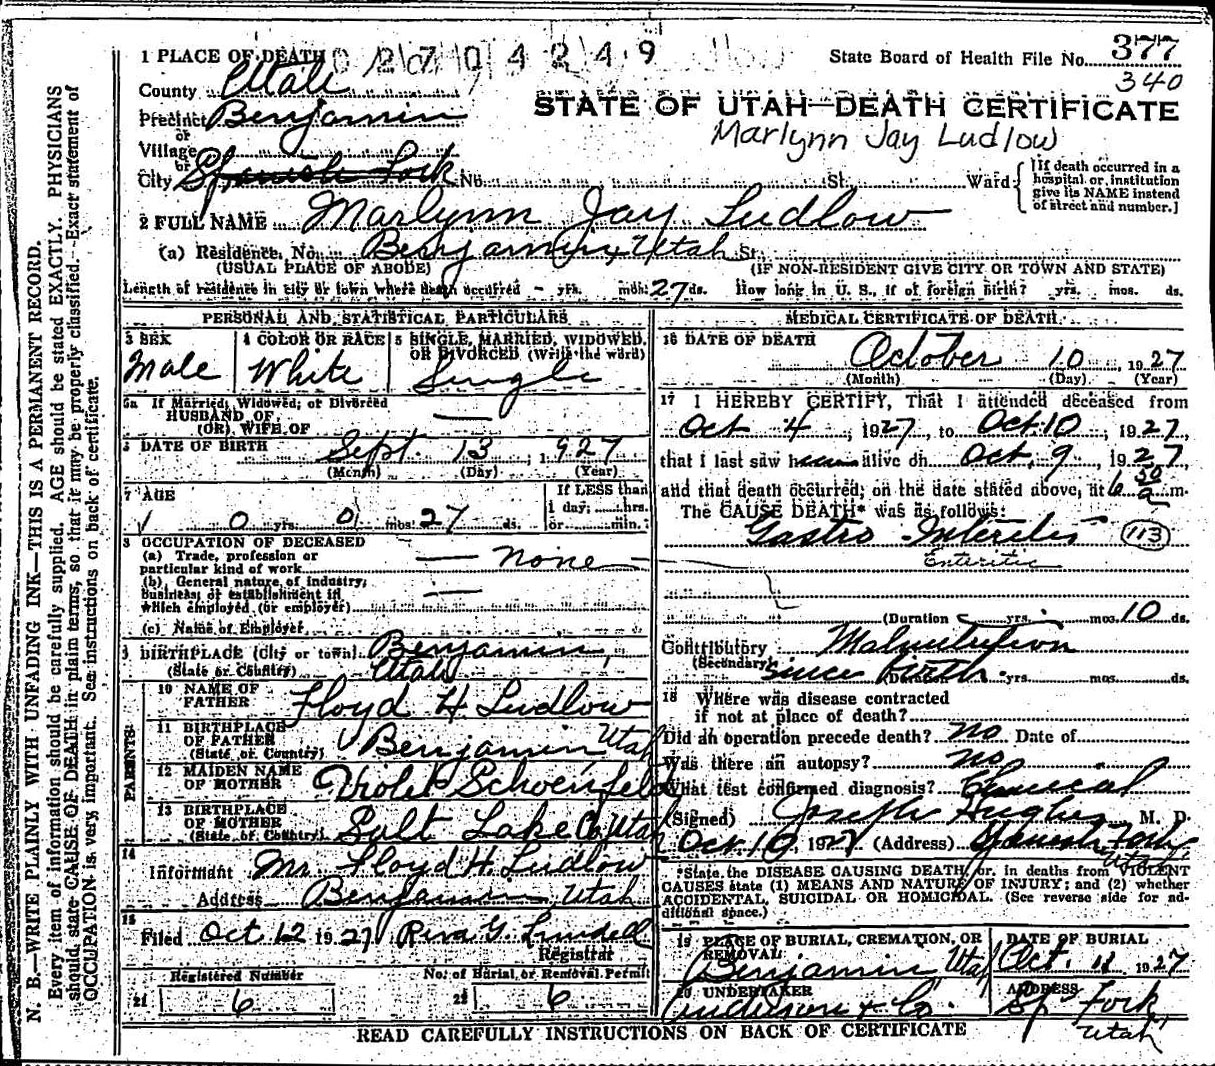 N. B.—WRITE PLAINLY WITH UNFADING INK—THIS IS A PERMANENT RECORD.
Every item of information should be carefully supplied. AGE should be stated EXACTLY. PHYSICIANS
should state CAUSE OF DEATH in plain terms, so that it may be properly classified. Exact statement of
OCCUPATION is very important. See instructions on back of certificate.
1 PLACE OF DEATH
0 2 7 0 4 2 4 9
State Board of Health File No. 377
340
County Utah
Precinct Benjamin
or
Village
or
City Spanish Fork No. St. Ward
STATE OF UTAH—DEATH CERTIFICATE
Marlynn Jay Ludlow
[If death occurred in a
hospital or institution
give its NAME instead
of street and number.]
2 FULL NAME Marlynn Jay Ludlow
(a) Residence, No. Benjamin, Utah St.
(USUAL PLACE OF ABODE) (IF NON-RESIDENT GIVE CITY OR TOWN AND STATE)
Length of residence in city or town where death occurred - yrs. mos. 27 ds. How long in U. S., if of foreign birth? yrs. mos. ds.
PERSONAL AND STATISTICAL PARTICULARS
3 SEX
Male
4 COLOR OR RACE
White
5 SINGLE, MARRIED, WIDOWED,
OR DIVORCED (Write the word)
Single
5a If Married, Widowed, or Divorced
HUSBAND OF
(OR) WIFE OF —
6 DATE OF BIRTH Sept. 13, 1927
(Month) (Day) (Year)
7 AGE
0 yrs. 0 mos. 27 ds.
If LESS than
1 day, hrs.
or min.
8 OCCUPATION OF DECEASED
(a) Trade, profession or
particular kind of work — none —
(b) General nature of industry,
business, or establishment in
which employed (or employer) —
(c) Name of Employer
9 BIRTHPLACE (City or town) Benjamin,
(State or Country) Utah
PARENTS
10 NAME OF
FATHER Floyd H Ludlow
11 BIRTHPLACE
OF FATHER
(State or Country) Benjamin Utah
12 MAIDEN NAME
OF MOTHER Violet Schoenfeld
13 BIRTHPLACE
OF MOTHER
(State or Country) Salt Lake Co, Utah
14
Informant Mr. Floyd H. Ludlow
Address Benjamin, Utah
15
Filed Oct 12 1927 Reva G. Lundell
Registrar
Registered Number
21 6
No. of Burial or Removal Permit
22 6
MEDICAL CERTIFICATE OF DEATH
16 DATE OF DEATH
October 10 1927
(Month) (Day) (Year)
17 I HEREBY CERTIFY, That I attended deceased from
Oct 4, 1927, to Oct. 10, 1927,
that I last saw h alive on Oct. 9, 1927,
and that death occurred, on the date stated above, at 6 50 a m.
The CAUSE DEATH* was as follows:
Gastro Interitis 113
Enteritis
(Duration yrs. mos. 10 ds.
Contributory Malnutrition
(Secondary) since birth
(Duration yrs. mos. ds.
18 Where was disease contracted
if not at place of death?
Did an operation precede death? no Date of
Was there an autopsy? no
What test confirmed diagnosis? Clinical
(Signed) Joseph Hughes M. D.
Oct. 10 1927 (Address) Spanish Fork,
Utah
*State the DISEASE CAUSING DEATH, or, in deaths from VIOLENT
CAUSES state (1) MEANS AND NATURE OF INJURY; and (2) whether
ACCIDENTAL, SUICIDAL OR HOMICIDAL. (See reverse side for ad-
ditional space.)
19 PLACE OF BURIAL, CREMATION, OR
REMOVAL
Benjamin Utah
DATE OF BURIAL
Oct. 11 1927
20 UNDERTAKER
Anderson & Co.
ADDRESS
Sp Fork
Utah
READ CAREFULLY INSTRUCTIONS ON BACK OF CERTIFICATE